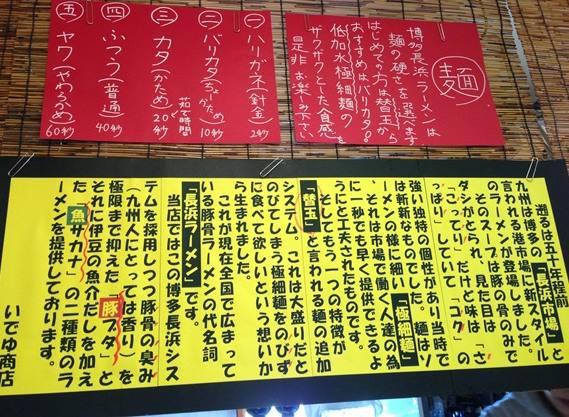 麺
博多長浜ラーメンは
麺の硬さを選べます
はじめての方は替玉から
おすすめはバリカタ。
低加水極細麺の
ザクザクとした食感を
是非お楽しみ下さい
一 ハリガネ(針金) 2秒
二 バリカタ(ちょーかため) 10秒
三 カタ(かため) 20秒
茹で時間
四 ふつう(普通) 40秒
五 ヤワ(やわらかめ) 60秒
遡るは五十年程前
九州は博多の「長浜市場」と
言われる港市場に新スタイル
ラーメンが登場しました。
そのスープは豚の骨のみで
ダシがとられ、見た目は「さ
っぱり」していて「コク」の
「こってり」だけど味は
強い独特の個性があり当時で
は斬新なものでした。麺はソ
ーメンの様に細い「極細麺」
、それは市場で働く人達の為
に一秒でも早く提供できるよ
うにと工夫されたものです。
そしてもう一つの特徴が
「替玉」と言われる麺の追加
システム。これは大盛りだと
のびてしまう極細麺をのびず
に食べて欲しいという想いか
ら生まれました。
これが現在全国で広まって
いる豚骨ラーメンの代名詞
「長浜ラーメン」です。
当店ではこの博多長浜シス
テムを採用しつつ豚骨の臭み
(九州人にとっては香り)を
極限まで抑えた「豚ブタ」と
それに伊豆の魚介だしを加え
た「魚サカナ」の二種類のラ
ーメンを提供しております。
いでゆ商店